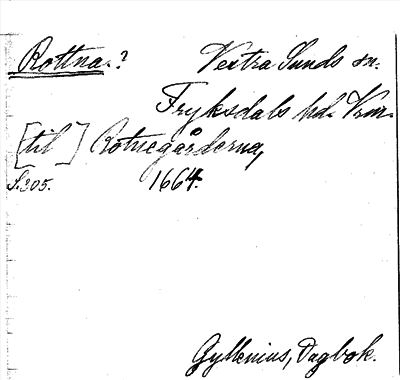 Rottna.? Vestra Sunds sn.
Fryksdals hd. Vrm.
[till] Rotnegårderna,
S.205. 1664.
Gyllenius, Dagbok.